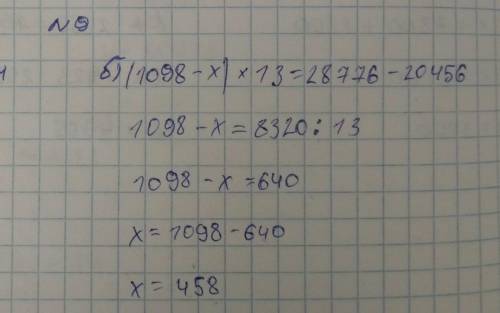 №9
б) (1098 - x) × 13 = 28776 - 20456
1098 - x = 8320 : 13
1098 - x = 640
x = 1098 - 640
x = 458